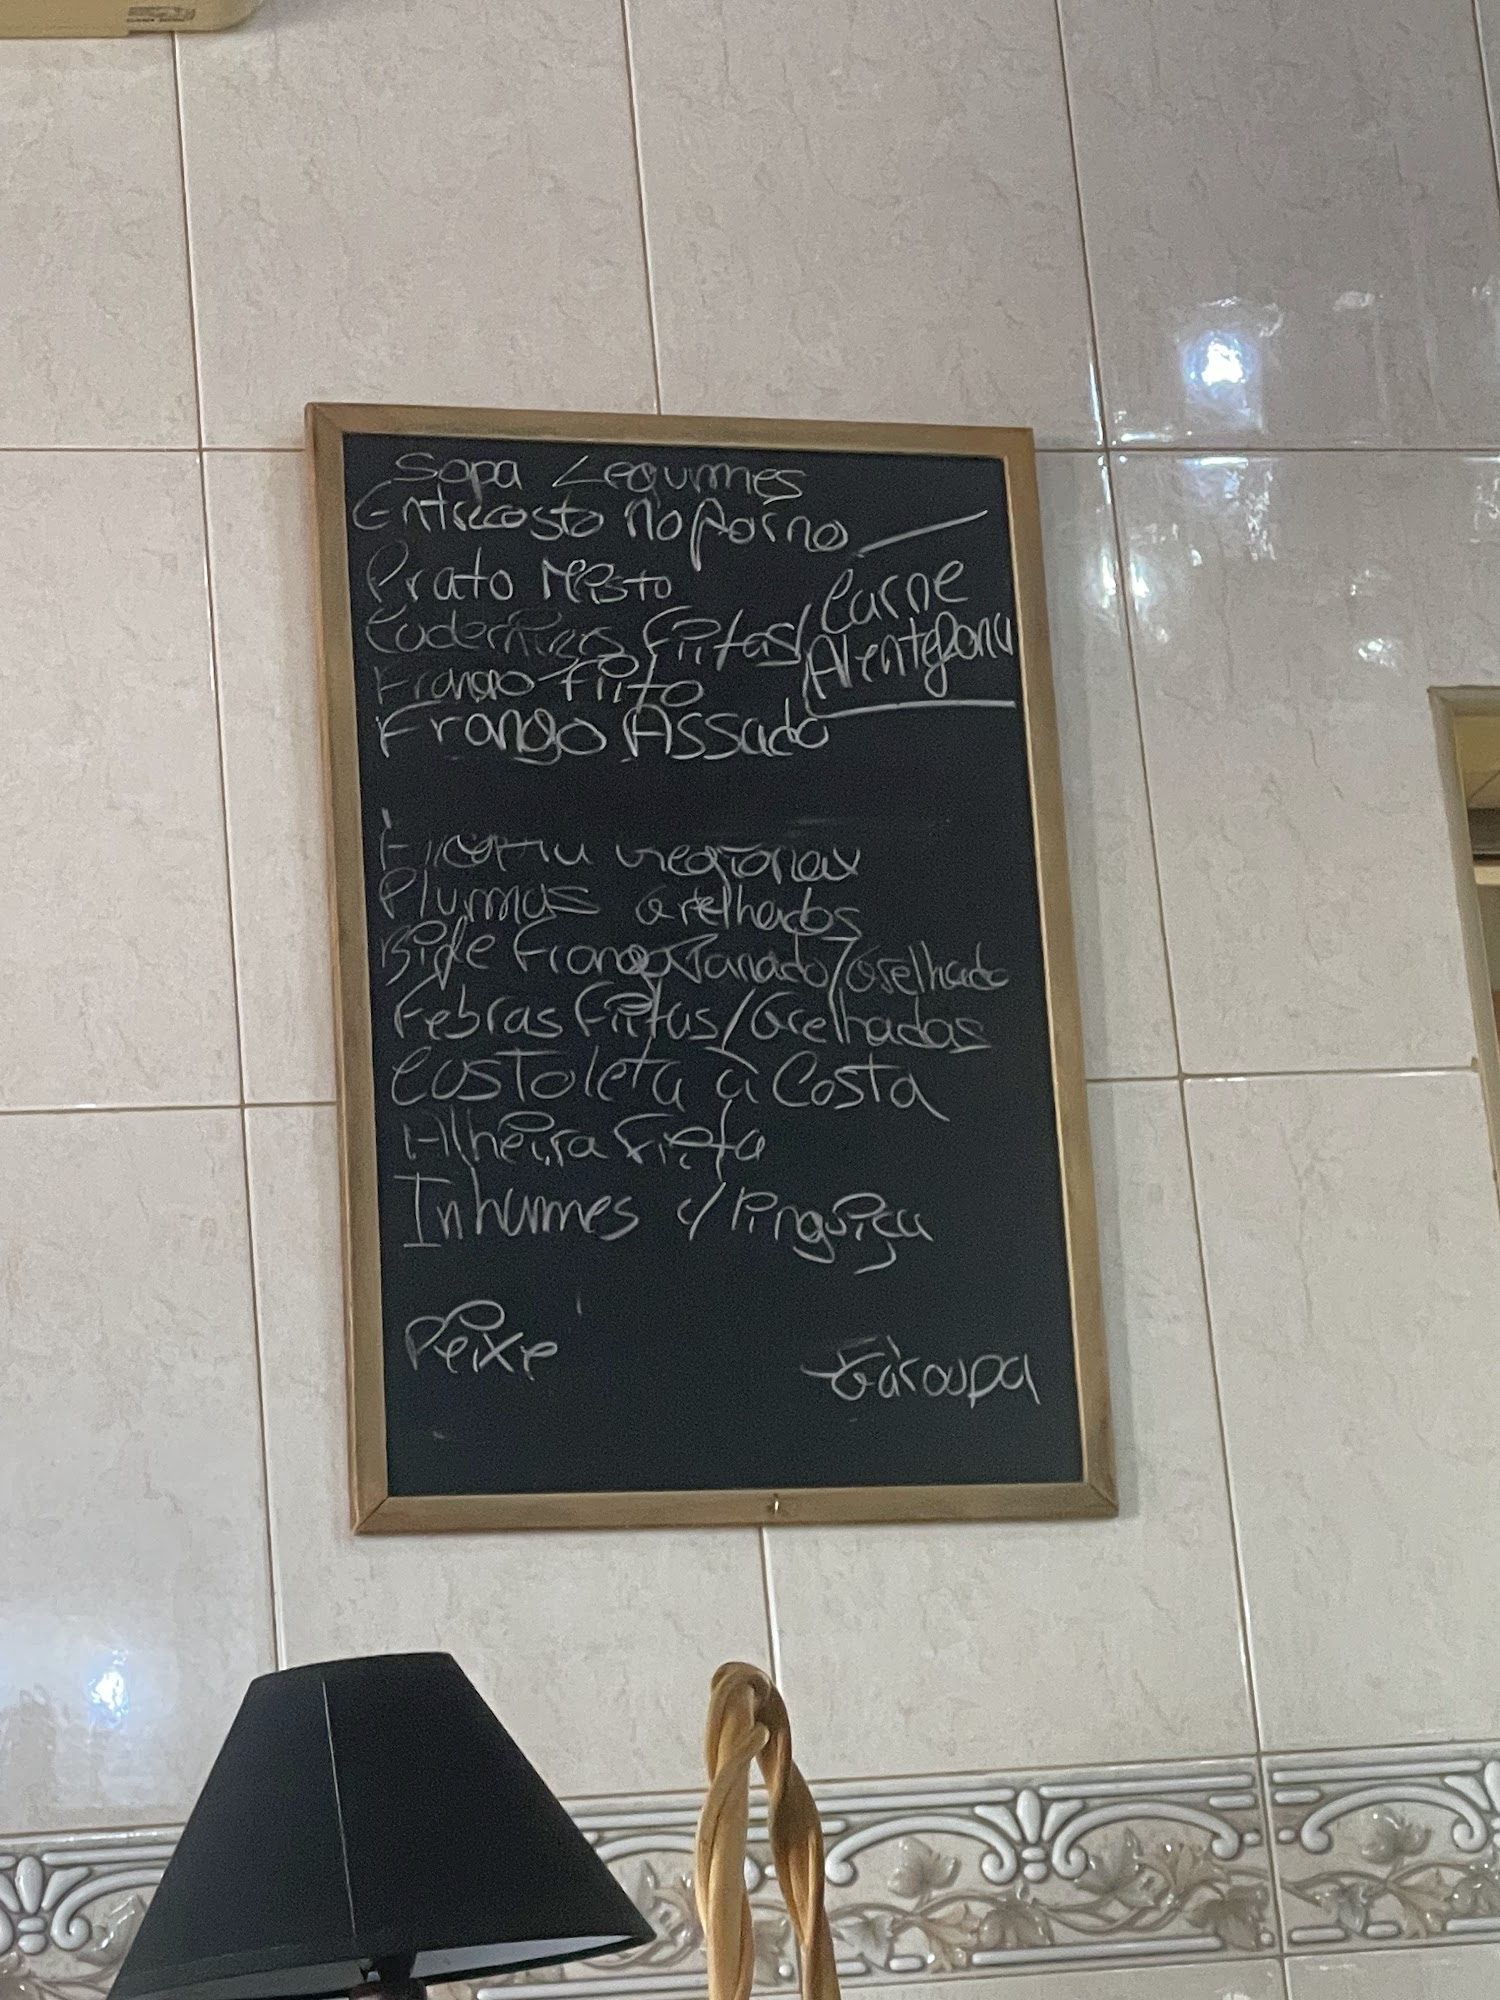 Sopa Legumes
Entrecosto no forno
Prato Misto
Codernizes Fritas/
Carne
Alentejana
Frango Frito
Frango Assado
regional
Plumas Grelhados
Bife Frango Panado/Grelhado
Febras Fritas/Grelhadas
Costoleta à Costa
Alheira Frita
Inhames c/ linguiça
Peixe
Garoupa